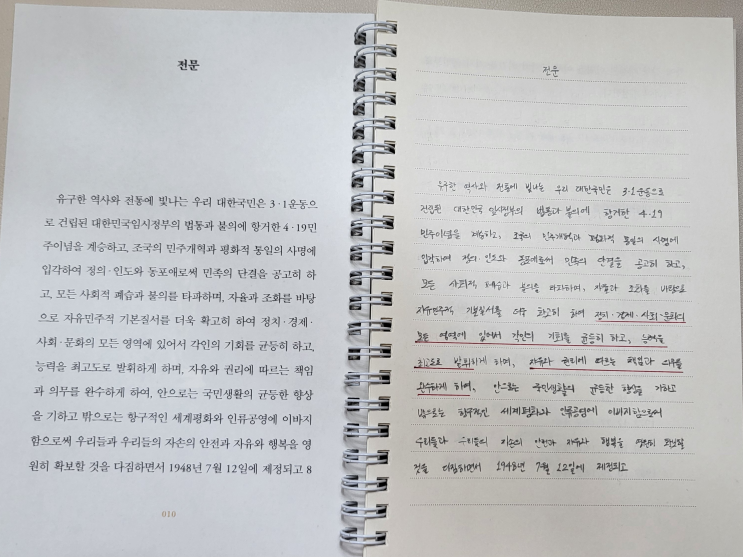 전문
유구한 역사와 전통에 빛나는 우리 대한국민은 3·1운동으
로 건립된 대한민국임시정부의 법통과 불의에 항거한 4·19민
주이념을 계승하고, 조국의 민주개혁과 평화적 통일의 사명에
입각하여 정의·인도와 동포애로써 민족의 단결을 공고히 하
고, 모든 사회적 폐습과 불의를 타파하며, 자율과 조화를 바탕
으로 자유민주적 기본질서를 더욱 확고히 하여 정치·경제·
사회·문화의 모든 영역에 있어서 각인의 기회를 균등히 하고,
능력을 최고도로 발휘하게 하며, 자유와 권리에 따르는 책임
과 의무를 완수하게 하여, 안으로는 국민생활의 균등한 향상
을 기하고 밖으로는 항구적인 세계평화와 인류공영에 이바지
함으로써 우리들과 우리들의 자손의 안전과 자유와 행복을 영
원히 확보할 것을 다짐하면서 1948년 7월 12일에 제정되고 8
010
전문
유구한 역사와 전통에 빛나는 우리 대한국민은 3·1운동으로
건립된 대한민국 임시정부의 법통과 불의에 항거한 4·19
민주이념을 계승하고, 조국의 민주개혁과 평화적 통일의 사명에
입각하여 정의·인도와 동포애로써 민족의 단결을 공고히 하고,
모든 사회적 폐습과 불의를 타파하며, 자율과 조화를 바탕으로
자유민주적 기본질서를 더욱 확고히 하여 정치·경제·사회·문화의
모든 영역에 있어서 각인의 기회를 균등히 하고, 능력을
최고도로 발휘하게 하며, 자유와 권리에 따르는 책임과 의무를
완수하게 하여, 안으로는 국민생활의 균등한 향상을 기하고
밖으로는 항구적인 세계평화와 인류공영에 이바지함으로써
우리들과 우리들의 자손의 안전과 자유와 행복을 영원히 확보할
것을 다짐하면서 1948년 7월 12일에 제정되고